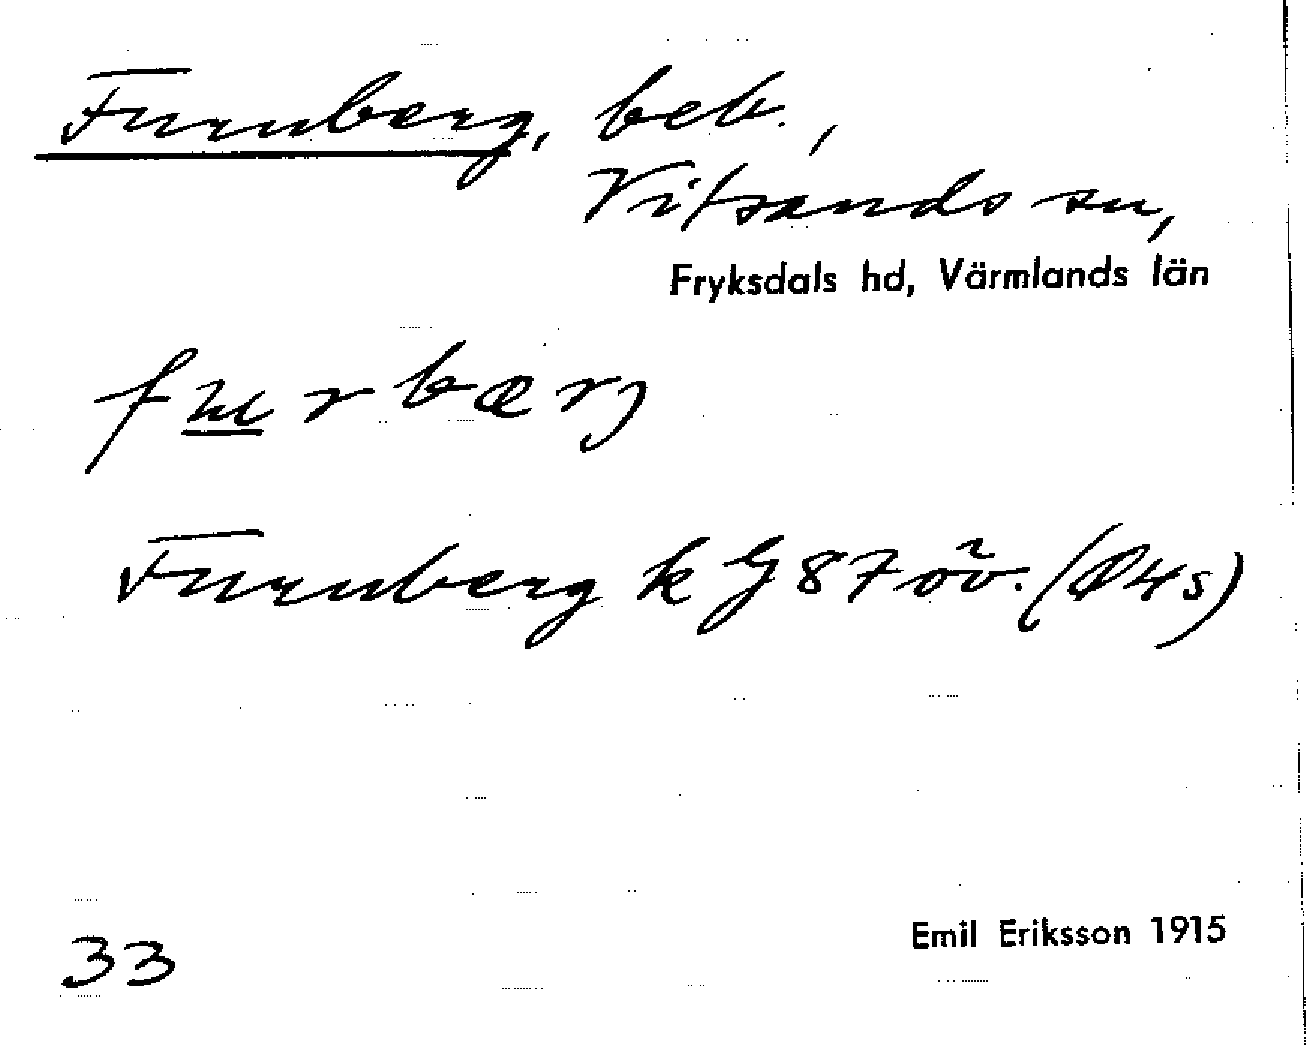 Furuberg, beb.,
Vitsands sn,
Fryksdals hd, Värmlands län
Furuberg k G 87 öv. (Ø4s)
33
Emil Eriksson 1915